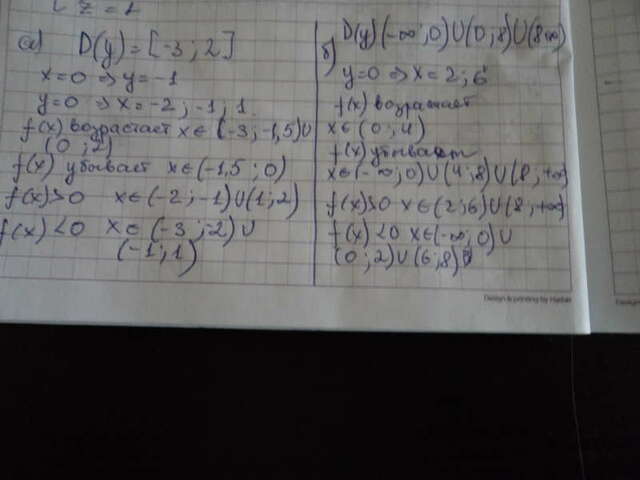 z = 2
а) D(y) = [-3 ; 2]
x=0 ⇒ y=-1
y=0 ⇒ x=-2 ; -1 ; 1
f(x) возрастает x∈(-3;-1,5)∪
(0 ; 2)
f(x) убывает x∈(-1,5 ; 0)
f(x)>0 x∈(-2 ; -1)∪(1 ; 2)
f(x)<0 x∈(-3 ; -2)∪
(-1 ; 1)
б) D(y) (-∞ ; 0)∪(0 ; 8)∪(8 ∞)
y=0 ⇒ x = 2 ; 6
f(x) возрастает
x∈(0 ; 4)
f(x) убывает
x∈(-∞ ; 0)∪(4 ; 8)∪(8 ; +∞)
f(x)>0 x∈(2 ; 6)∪(8 ; +∞)
f(x)<0 x∈(-∞ ; 0)∪
(0 ; 2)∪(6 ; 8)
Design & printing by Hatber